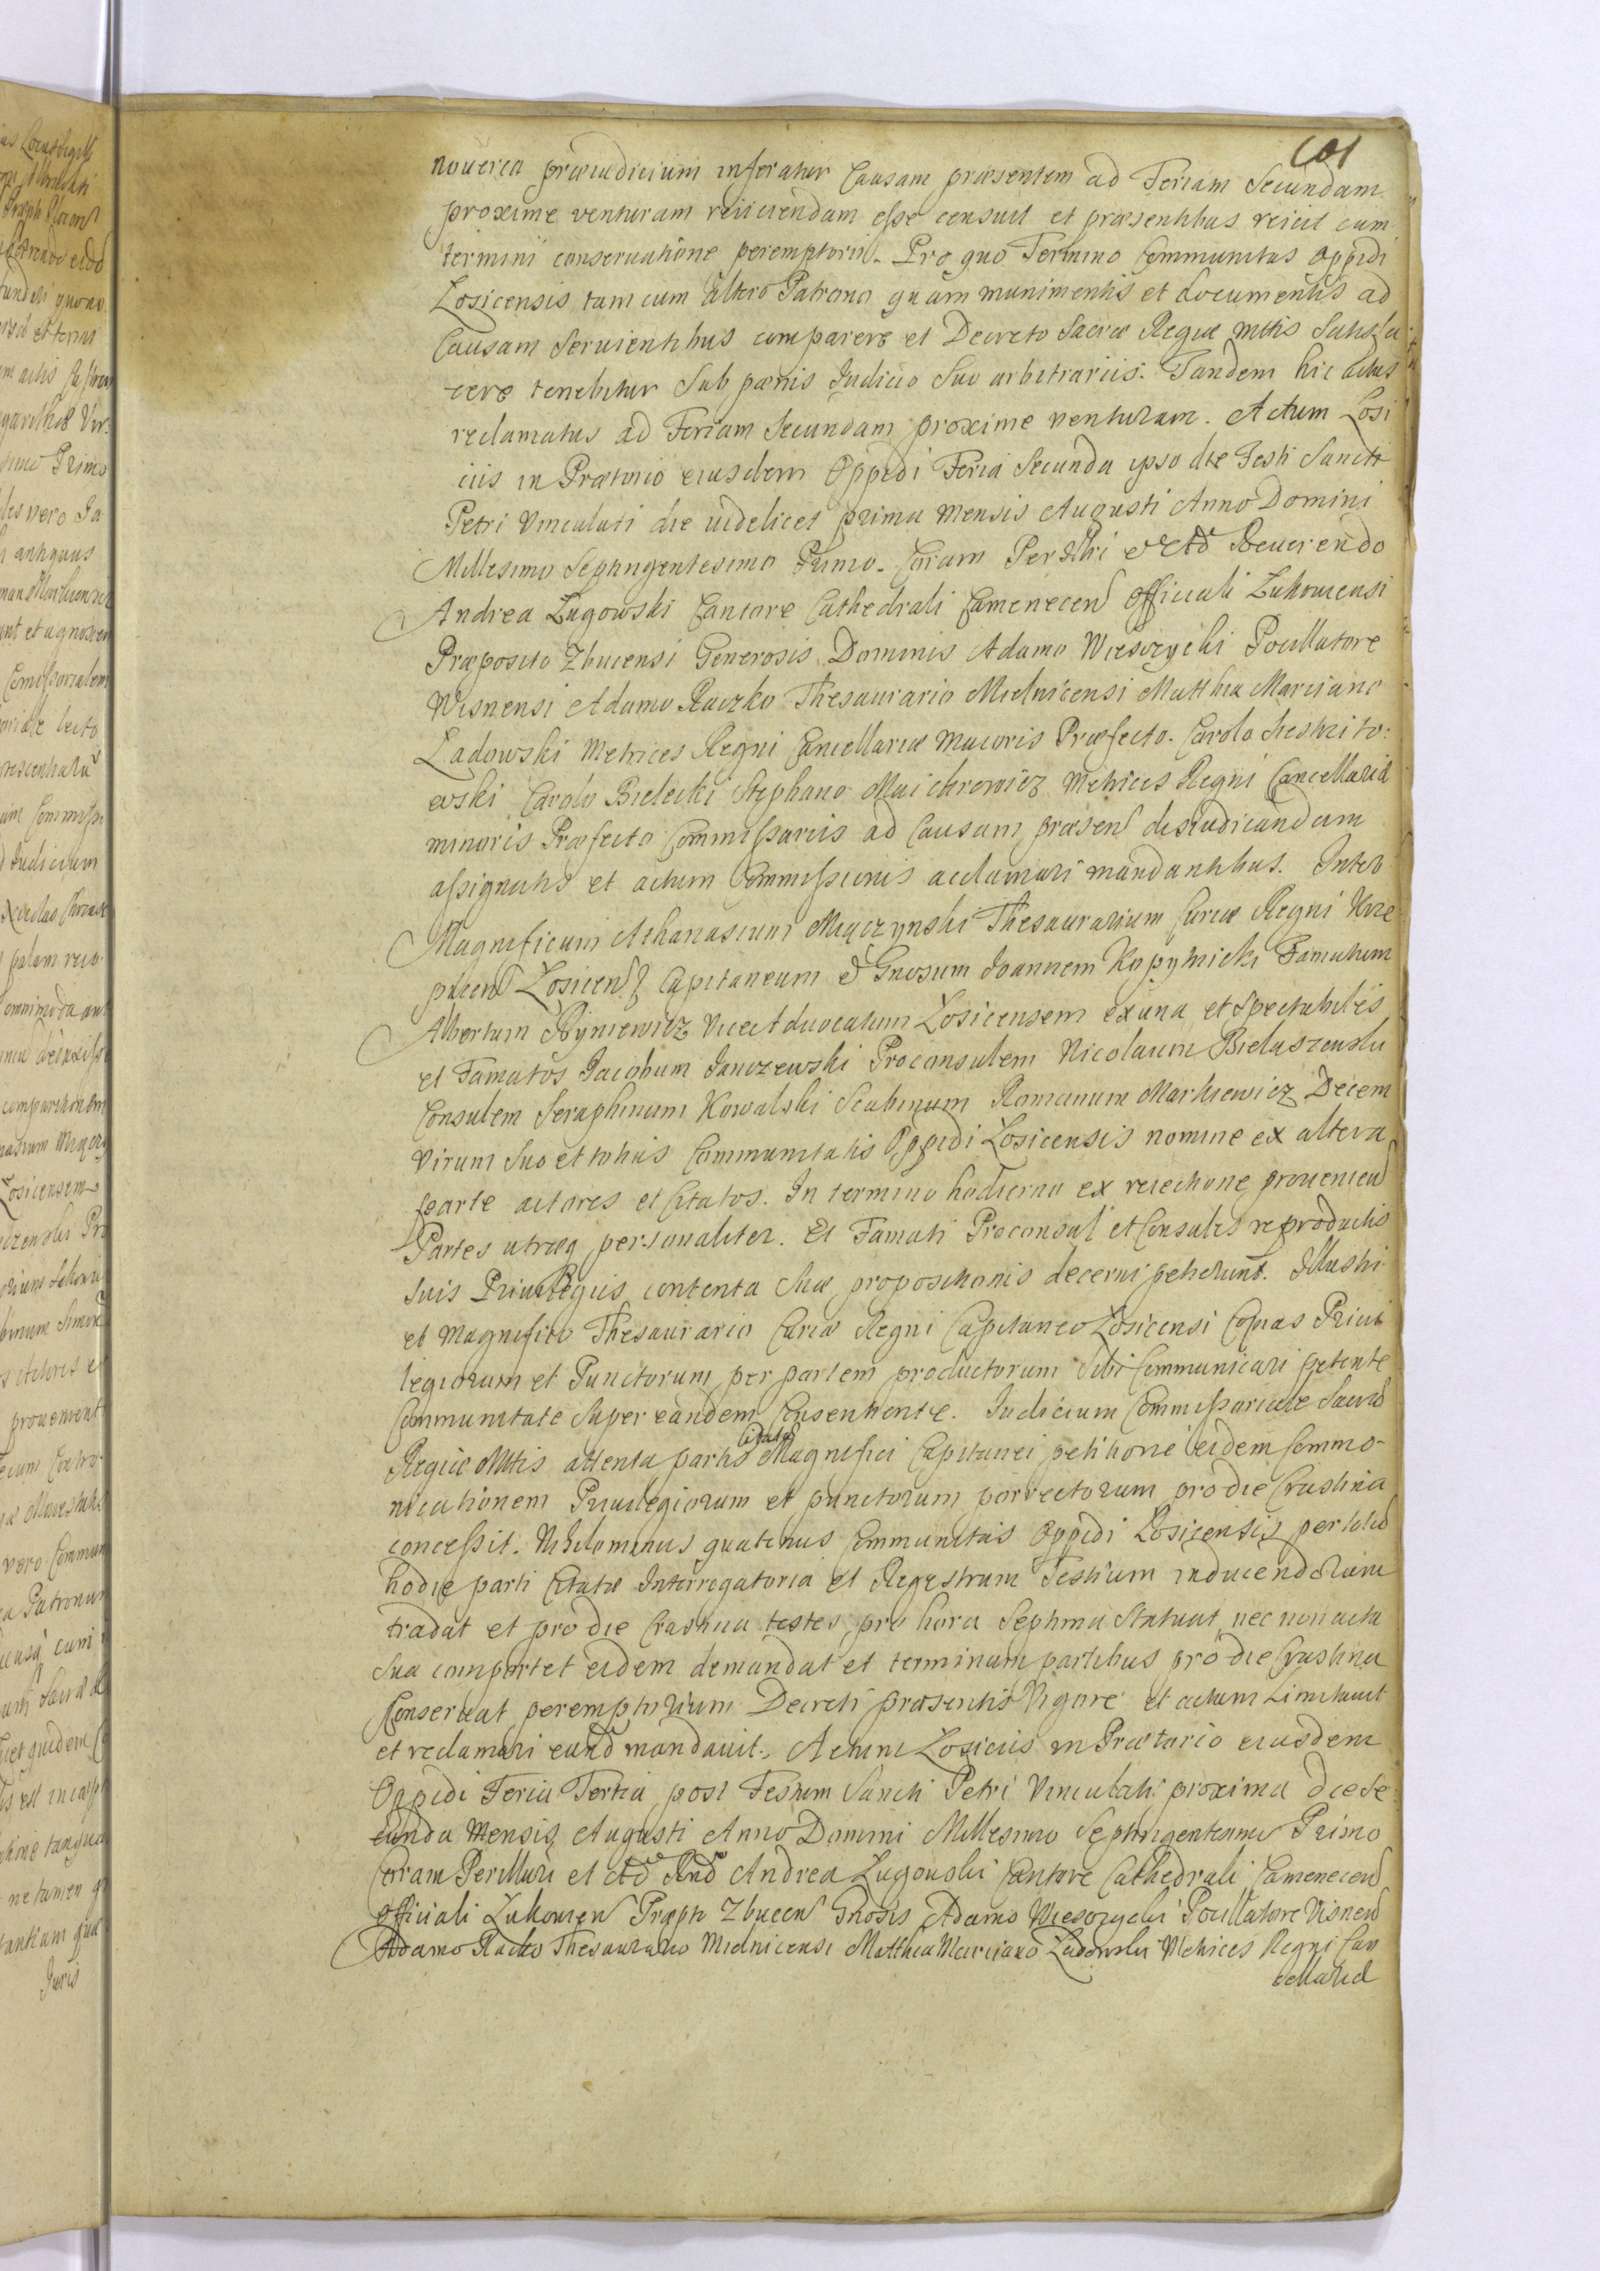 101
noverca præiudicium inferatur Causam præsentem ad Feriam Secundam
proxime venturam reiiciendam esse censuit et præsentibus reicit cum
termini conservatione peremptorii. Pro quo Termino Communitas Oppidi
Losicensis tam cum altero Patrono quam munimentis et documentis ad
Causam Servientibus comparere et Decreto Sacræ Regiæ Mttis Satisfa
cere tenebitur Sub pænis Iudicio Suo arbitrariis. Tandem hic actus
reclamatus ad Feriam Secundam proxime venturam. Actum Losi
ciis in Prætorio eiusdem Oppidi Feria Secunda ipso die Festi Sancti
Petri Vinculati die videlicet prima Mensis Augusti Anno Domini
Millesimo Septingentesimo Primo. Coram Perillri et Adto Reuerendo
Andrea Lugowski Cantore Cathedrali Camenecen Officiali Lukouiensi
Præposito Zbucensi Generosis Dominis Adamo Wiesozycki Pocillatore
Wisnensi Adamo Raczko Thesaurario Mielnicensi Matthia Marciano
Ladowski Metrices Regni Cancellariæ Maioris Præfecto. Carolo
ewski Carolo Bielecki Stephano Maichrowicz Metrices Regni Cancellariæ
minoris Præfecto Commissariis ad Causam præsen disiudicandam
assignatis et actum Commissionis acclamari mandantibus. Inter
Magnificum Athanasium Miączynski Thesaurarium Curiæ Regni Krze
picen Losicen Capitaneum & Gnosum Ioannem Kopytnicki Famatum
Albertum Ryniewicz ViceAduocatum Losicensem ex una et Spectabiles
et Famatos Iacobum Ianczewski Proconsulem Nicolaum Bielaszewski
Consulem Seraphinum Kowalski Scabinum Romanum Markiewicz Decem
virum Suo et totius Communitatis Oppidi Losicensis nomine ex altera
parte actores et Citatos. In termino hodierno ex reiectione prouenien
Partes utræq personaliter. Et Famati Proconsul et Consules reproductis
suis Priuilegiis contenta suæ propositionis decerni petierunt. Illustri
et Magnifico Thesaurario Curiæ Regni Capitaneo Losicensi Copias Priui
legiorum et Punctorum per partem productorum Sibi Communicari petente
Communitate Super eandem Consentiente. Iudicium Commissoriale Sacræ
Regiæ Mttis attenta partis citatæ Magnifici Capitanei petitione eidem Commo-
nicationem Priuilegiorum et punctorum porrectorum pro die Crastina
concessit. Nihilominus quatenus Communitas Oppidi Losicensis per totu
hodie parti Citatæ Interrogatoria et Regestrum Testium inducendorum
tradat et pro die Crastina testes pro hora Septima Statuat nec non acta
Sua comportet eidem demandat et terminum partibus pro die Crastina
Conseruat peremptorium Decreti præsentis Vigore et actum Limitauit
et reclamari eund mandauit. Actum Losiciis in Prætorio eiusdem
Oppidi Feria Tertia post Festum Sancti Petri Vinculati proxima die Se
cunda Mensis Augusti Anno Domini Millesimo Septingentesimo Primo
Coram Perillri et Adto Rndo Andrea Lugouski Cantore Cathedrali Camenecen
Officiali Lukouien Præpto Zbucen Gnosis Adamo Wiesozycki Pocillatore Visnen
Adamo Racko Thesaurario Mielnicensi Matthia Marciano Ladowski Metrices Regni Can
cellariæ